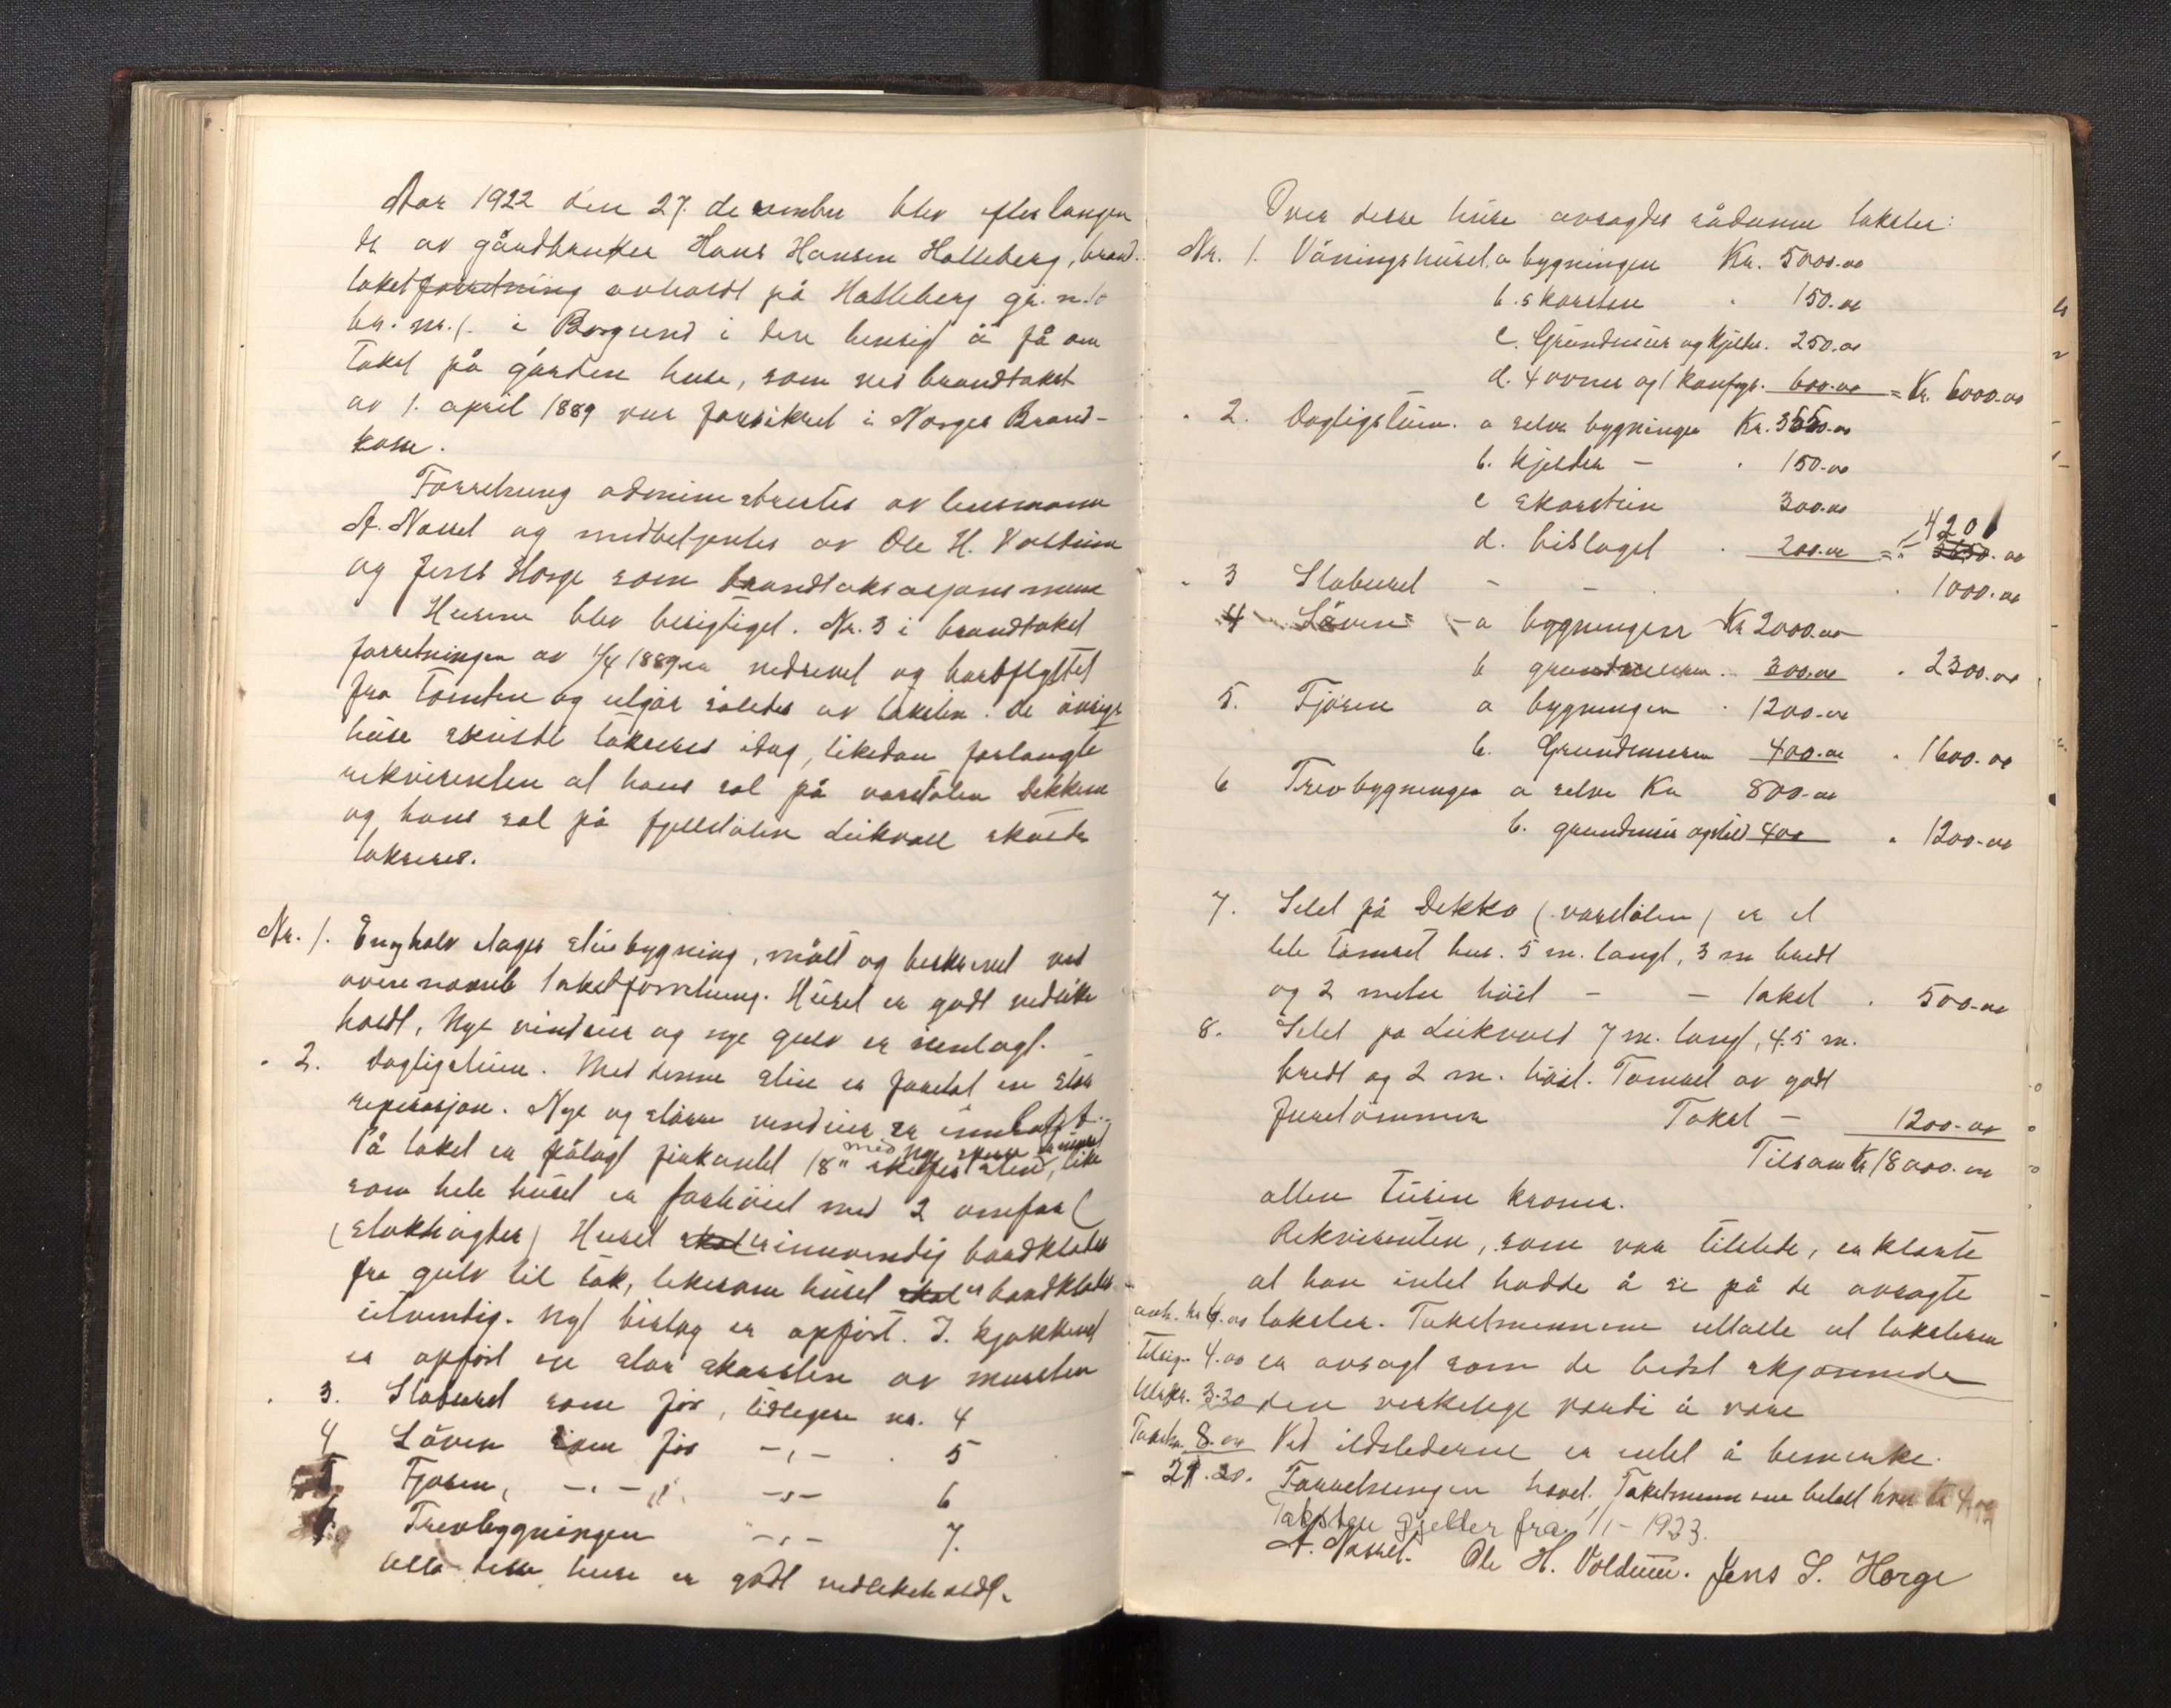 Aar 1922 den 27. desember blev efter langen
de av gårdbruker Hans Hansen Halleberg, brand.
takstforretning avholdt på Halleberg gr. n. 10
br. nr. 1. i Borgund i den hensigt å få om
takst på gården huse, som ved brandtakst
av 1. april 1889 var forsikret i Norges Brand-
kasse.
Forretning administrertes av lensmann
A. Nauel og medbetjentes av Ole H. Voldum
og Jens Horge som brandtaksasjonsmenn
Husene blev besigtiget. Nr. 3 i brandtakst
forretningen av 1/4 1889 er nedrevet og bortflyttet
fra tomten og utgår således av taksten. De øvrige
huse takseres idag, likedan forlangte
rekvirenten at hans sel på vaarstølen Dekken
og hans sel på fjellstølen skulde
takseres.
Nr. 1. En og halv etages stuebygning, målt og beskrevet ved
ovennevnte takstforretning. Huset er godt vedlike
holdt, Nye vinduer og nye gulv er innlagt.
" 2. Dagligstuen. Med denne stue er foretat en stor
reperasjon. Nye og større vinduer er innsatt.
På taket er pålagt firkantet 18" skifersten,
med nye
like
som hele huset er forhøiet med 2 omfar
(stokhøgder) Huset skal er innvendig bordkledt
fra gulv til tak, likesom huset skal er bordkledt
utvendig. Nyt bislag er opført. I kjøkkenet
er opført en stor skorsten av mursten
" 3. Staburet som før, tidligere nr. 4
4 Løven som før -"- . 5
5 Fjøsen, -"- -"- 6
6 Trevbygningen -"- 7.
Alle desse huse er godt vedlikeholdt.
Over desse huse avsagdes sådanne takster:
Nr. 1. Våningshuset. a bygningen Kr. 5000.00
b. skorsten " 150.00
c. Grundmur og kjelder. 250.00
d. 4 ovner og 1 komfyr. 600.00 = Kr. 6000.00
" 2. Dagligstuen. a selve bygningen Kr. 3550.00
b. kjelder - " 150.00
c skorstein 300.00
d. bislaget " 200.00 = " 4200
.00
" 3 Staburet - - " 1000.00
4 Løven - a bygningen Kr 2000.00
b grundmuren " 300.00 " 2300.00
5. Fjøsen a bygningen " 1200.00
b. Grundmuren 400.00 " 1600.00
6 Trevbygningen a selve Kr 800.00
b. grundmur 400 " 1200.00
7. Selet på Dekko (vaarstølen) er et
lite tømret hus. 5 m. langt, 3 m bredt
og 2 meter høit - - takst . 500.00
8. Selet på 7 m. langt, 4.5 m.
bredt og 2 m. høit. Tømret av godt
furutømmer Takst - 1200.00
Tilsam Kr 18000.00
atten tusen kroner.
Rekvirenten, som var tilstede, erklærte
at han intet hadde å si på de avsagte
takster. Takstmennene uttalte at taksterne
er avsagt som de bedst skjønnede
den verkelige verdi å være
Ved ildstederne er intet å bemerke.
Forretningen hevet. Takstmennene betalt hver kr 4.00
Taksten gjelder fra 1/1 - 1923.
A. Nauel. Ole H. Voldum. Jens S. Horge
avh. kr 6.00
4.00
3.20
8.00
21.20.